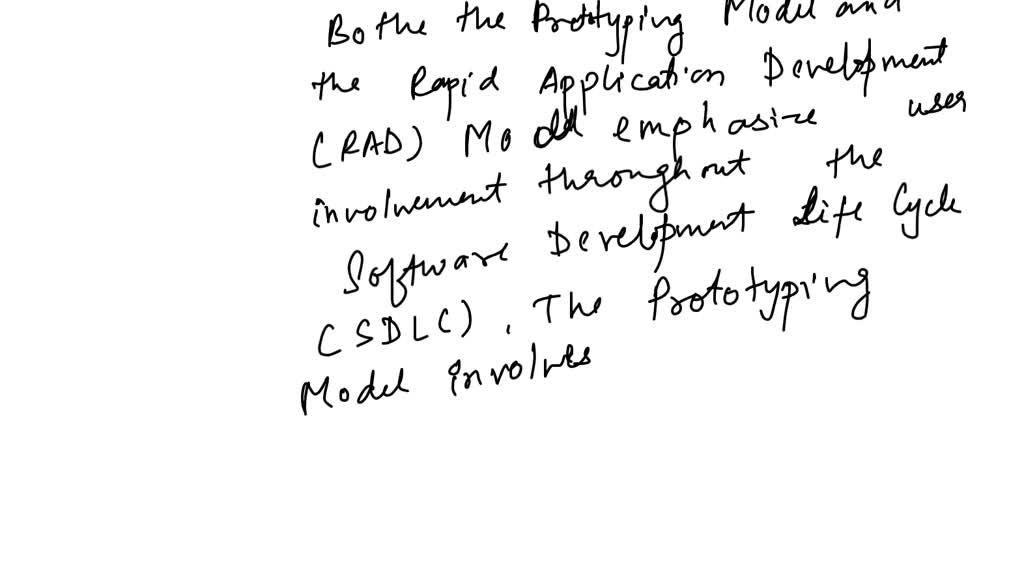 Bothe the Prototyping Model and
the Rapid Application Development
(RAD) Model emphasize user
involvement throughout the
Software Development Life Cycle
(SDLC). The Prototyping
Model involves